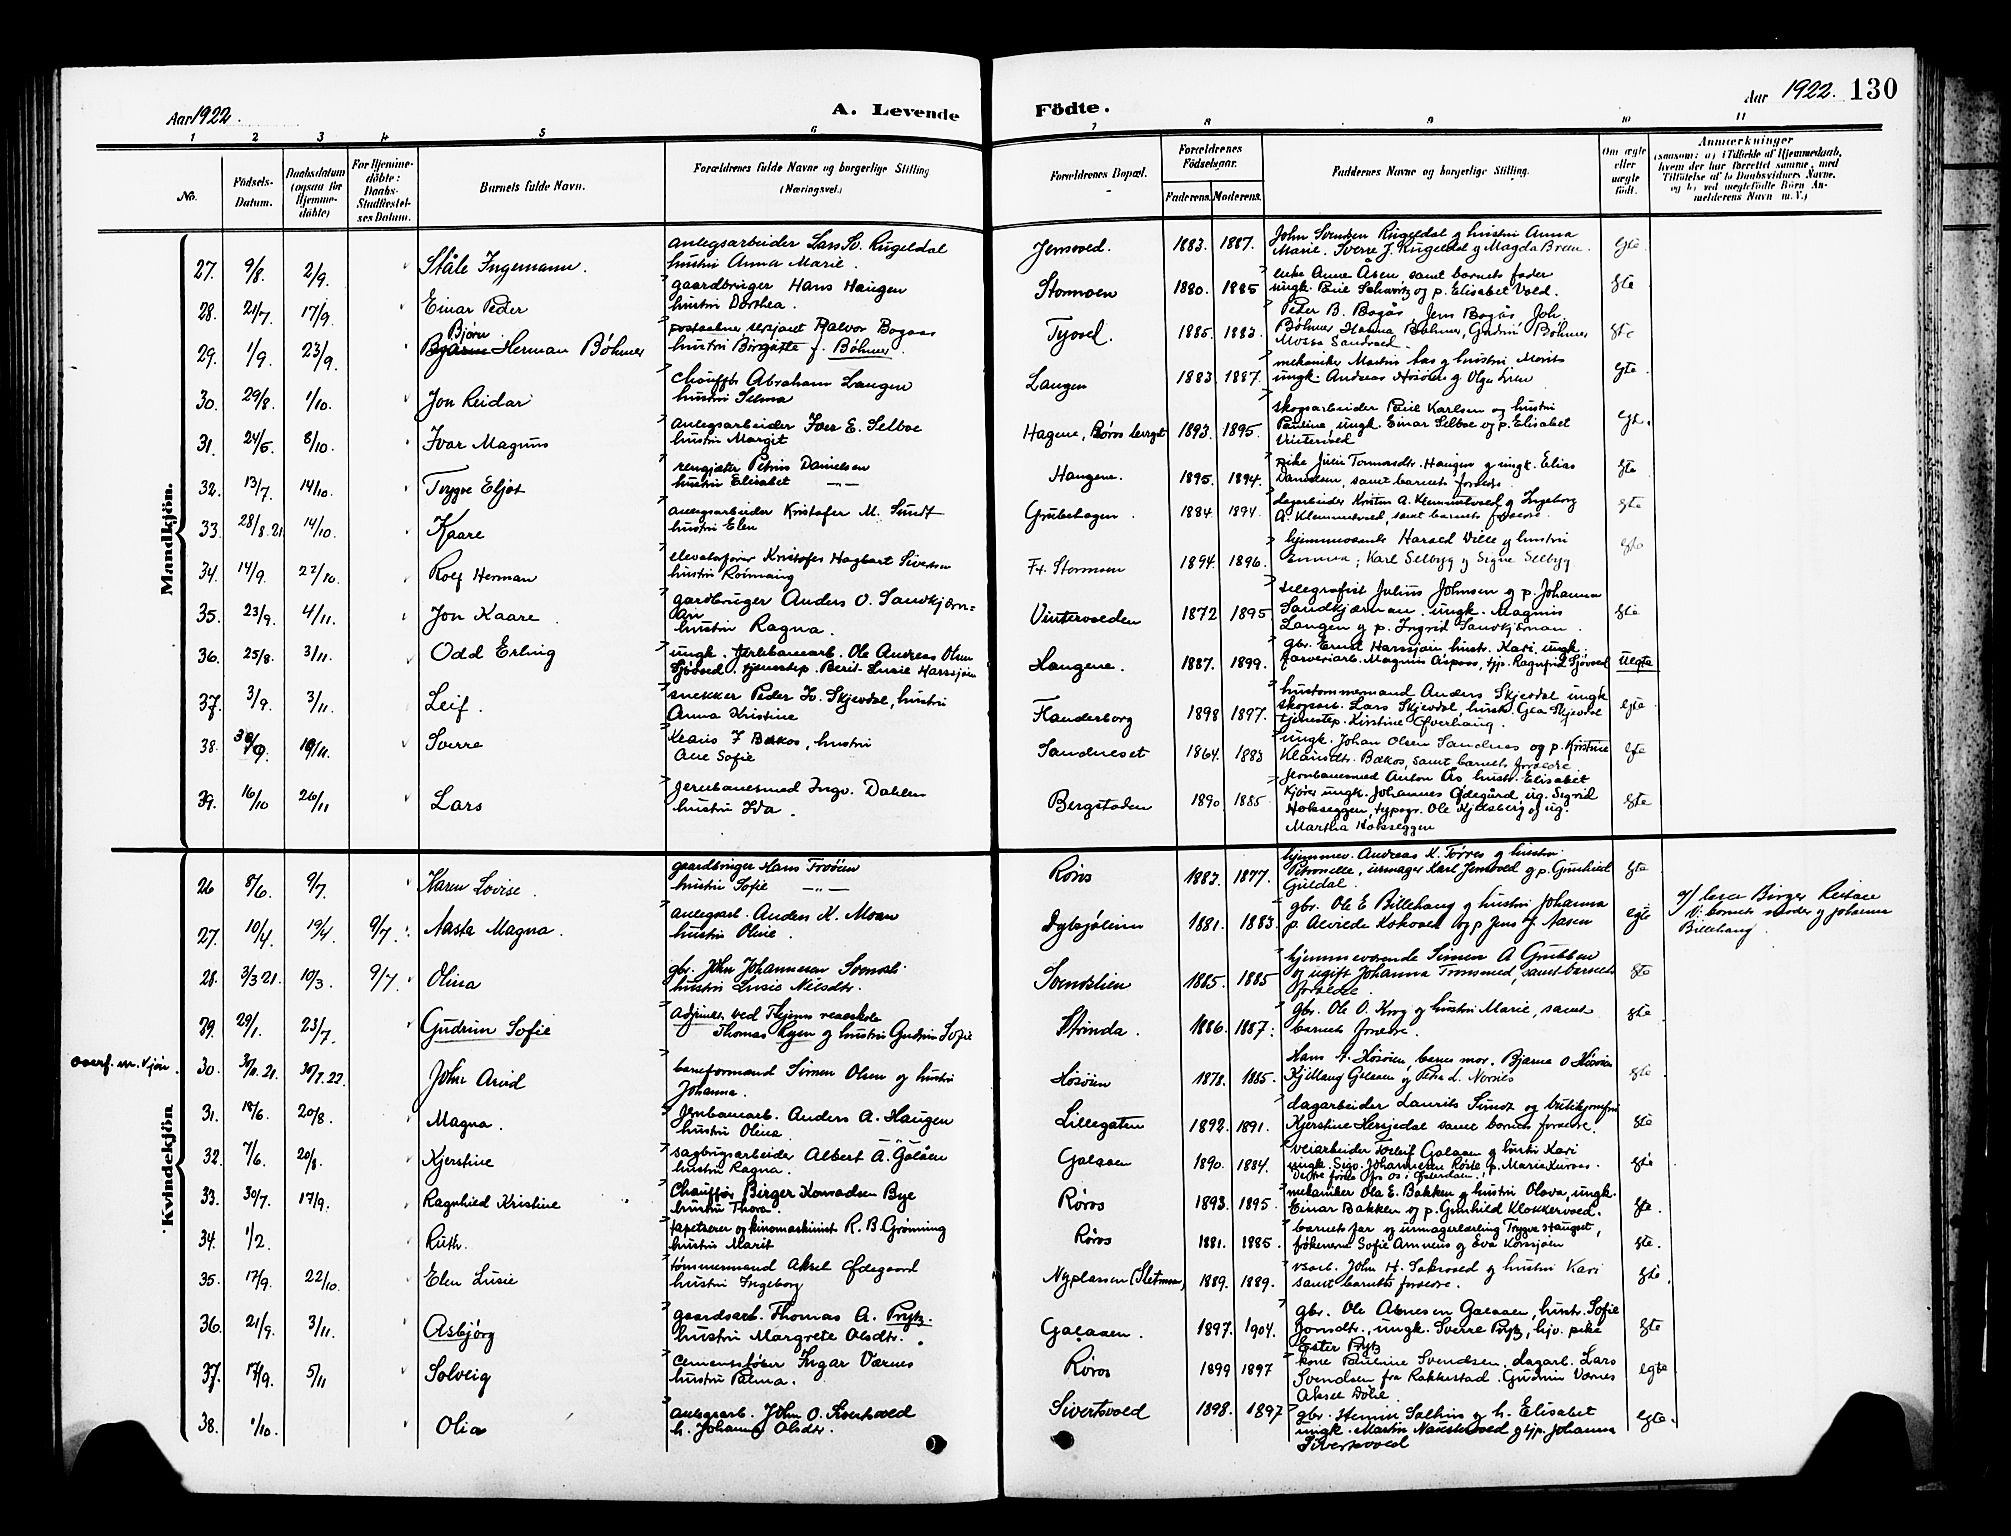 Aar 1922.
A. Levende
Födte.
Aar 1922. 130
1 2 3 4 5 6 7 8 9 10 11
No.
Födsels-
Datum.
Daabsdatum
(ogsaa for
Hjemme-
döbte)
For Hjemme-
döbte:
Daabs-
Stadfæstel-
ses Datum.
Barnets fulde Navn.
Forældrenes fulde Navne og borgerlige Stilling
(Næringsvei.)
Forældrenes Bopæl.
Forældrenes
Födselsaar.
Faderens. Moderens.
Faddernes Navne og borgerlige Stilling.
Om ægte
eller
uægte
födt.
Anmærkninger
(saasom: a) i Tilfælde af Hjemmedaab,
hvem der har forrettet samme, med
Tilföielse af to Daabsvidners Navne,
og b) ved uægtefödte Börn An-
melderens Navn m. V.)
Mandkjön.
27. 9/8. 2/9. Ståle Ingemann.
anlegsarbeider Lars Sv. Rugeldal
hustru Anna Marie.
Jensvold. 1883. 1887.
John Svendsen Rugeldal og hustru Anna
Marie. Sverre J. Rugeldal og Magda Broen. egte
28. 21/7. 17/9. Einar Peder
gaardbruger Hans Haugen
hustru Dorthea.
Stormoen 1880. 1885
enke Anne Åsen samt barnets fader
ungk. og p. Elisabet Vold. egte
29. 1/9. 23/9. Bjørn
Herman Bøhmer
Halvor Bogaas
hustru Birgitte f. Bøhmer.
Tyvol. 1885. 1883.
Peder B. Bogås Jens Bogås Joh.
Bøhmer Hanna Bøhmer, Gudrun Bøhmer
Sandvold egte
30. 29/8. 1/10. Jon Reidar
Chauffør Abraham Langen
hustru Selma
Langen 1883. 1887.
mekaniker Martin Aas og hustru
ungk. Andreas og Olga egte
31. 24/5. 8/10. Ivar Magnus
anlegsarbeider Iver E. Selboe
hustru Margit
Hagene, Røros 1893. 1895.
skogsarbeider Paul Karlsen og hustru
Pauline, ungk. Einar Selboe og p. Elisabet
Vintervold egt.
32. 13/7. 14/10. Trygve Eljot
Petrus Danielsen
hustru Elisabet —"—
Haugene. 1895. 1894.
pike Julie Haugen og ungk. Elias
Danielsen, samt barnets foreldre egte
33. 28/8.21. 14/10. Kaare
anlegsarbeider Kristofer M. Sundt
hustru Elen
Grubehagen. 1884 1894.
dagarbeider Kristen A. Klemmetvold og Ingeborg
A. Klemmetvold, samt barnets foreldre. egte
34. 14/9. 22/10. Rolf Herman
Kristofer Hagbart Sivertsen
hustru
Fr. Stormoen 1894. 1896.
Harald Ville og hustru
Emma; Karl Selbyg og Signe Selbyg egte
35. 23/9. 4/11. Jon Kaare.
gardbruger Anders O. Sandkjærn=
hustru Ragna.
Vintervolden 1872 1895
telegrafist Julius Johnsen og p. Johanna
Sandkjærnan, ungk. Magnus
Langen og p. Ingrid Sandkjærnan. egte
36. 25/8. 3/11. Odd Erling
ungk. jernbanearb. Ole Andreas Olsen
Sjøvold. tjenestep. Berit Lusie Harssjøen
Haugene. 1887. 1899.
gbr. Ernst Harssjøen hustr. Kari, ungk.
farveriarb. Magnus Aspaas, tjp. Ragnfrid Sjøvold uegte
37. 3/9. 3/11. Leif.
snekker Peder Skjevdal, hustru
Anna Kristine
Flanderborg 1898 1897.
hustømmermand Anders Skjevdal ungk
skogsarb. Lars Skjevdal, hustr. Skjevdal
tjenestep. Kirstine Øverhaug. egte
38. 19/11. Sverre
Klaus J Bakos, hustru
Ane Sofie
Sandneset 1864. 1883
ungk. Johan Olsen Sandnes og p. Kjirstine
Klausdtr. Bakos, samt barnets foreldre. egte
39. 16/10 26/11 Lars
jernbanemand Ingv. Dahlen
hustru Ida.
Bergstaden 1890 1885
jernbanemed Anton Ås hustr. Elisabet
ungk. Johannes Ødegård, ug. Sigrid
Hokseggen, typogr. Ole Kjelsberg og ug.
Martha Hokseggen egte
Kvindekjön
26 8/6. 9/7. Karen Lovise.
gaardbruger Hans
hustru Sofie —"—
Røros 1883. 1877.
hjemmev. Andreas K. Tørres og hustru
Petronelle, urmager Karl Jensvold og p. Gunhild
Guldal. egte
27. 10/4. 19/4. 9/7. Aasta Magna.
anlegsarb. Anders K. Moan
hustru Oline.
1881. 1883.
gbr. Ole E Billehaug og hustru Johanna
p. Alvilde og p Jens Aasen egte
a/ lærer Birger Reitan
b: barnets moder og Johanna
Billehaug.
28. 3/3 21. 10/3. 9/7. Olina
gbr. John Johannesen
hustru Lusie Nilsdtr.
Svendslien 1885. 1885
hjemmeværende Simen A Grubben
og ugift Johanna, samt barnets
foreldre. egte
29. 29/1. 23/7. Gudrun Sofie
Adjunkt ved Thjems realskole
Thomas Lysen og hustru Gudrun Sofie
Strinda. 1886. 1887.
gbr. Ole O. Krog og hustru Marie, samt
barnets foreldre. egte
overf. m. kjøn.
30. 30/7.22. John Arvid
baneformand Simen Olsen og hustru
Johanna.
Hosøien 1878. 1885.
Hans A. Hosøien, barnets mor. Bjarne O Hosøien
Galaaen, og Petra L. Nornes egte
31. 18/6. 20/8. Magna.
Jernbanearb. Anders A. Haugen
hustru Olina
Lillegaten 1892. 1891.
dagarbeider Laurits og butikjomfru
Kjerstine Hersjedal samt barnets foreldre. egte
32. 7/6. 20/8. Kjerstine
sagbrugsarbeider Albert A. Galåen
hustru Ragna.
Galaaen 1890. 1884.
veiarbeider Galaaen og hustru Kari
ungk. Sigv. Johannesen Røste p. Maria Kurvås. egte
33. 30/7. 17/9. Ragnhild Kristine
Chauffør Birger Konradsen Bye
hustru Thora.
Røros 1893. 1895.
mekaniker Ola E. Bakken og hustru Olava, ungk.
Einar Bakken og p. Gunhild Klokkervold. egte.
34. 1/2. Ruth.
tapetserer og kinomaskinist R. B. Grønning
hustru Marit
Røros 1881. 1885.
barnets far og urmagerlærling Trygve Hauget,
frøknerne Sofie Amneus og Eva Korssjøen egte.
35. 17/9. 22/10. Elen Lusie
tømmermand Aksel Ødegaard
hustru Ingeborg
Nyplassen (Sletmoen) 1889. 1889.
John H. og hustru Kari
samt barnets foreldre. egte
36. 21/9. 3/11. Asbjørg
gaardsarb. Thomas A. Prytz.
hustru Margrete Olsdtr.
Galaaen. 1897. 1904.
gbr. Ole Galaaen, hustr. Sofie
Jonsdtr., ungk. Sverre Prytz, hjv. pike
Ester Prytz egte
37. 17/9. 5/11 Solveig
Ingar Værnes
hustru Palma.
Røros 1899 1897
kone Pauline Svendsen, dagarb. Lars
Svendsen fra Rakkestad. Gudrun Værnes
Aksel Dølie. egte
38. 1/10. Olia
anlegsarb. John O. Sivertsvold
h. Johanna Olsdtr.
Sivertsvold 1898. 1897
gbr. og h. Elisabet
ungk. Martin og tjp. Johanna
Sivertsvold egte.